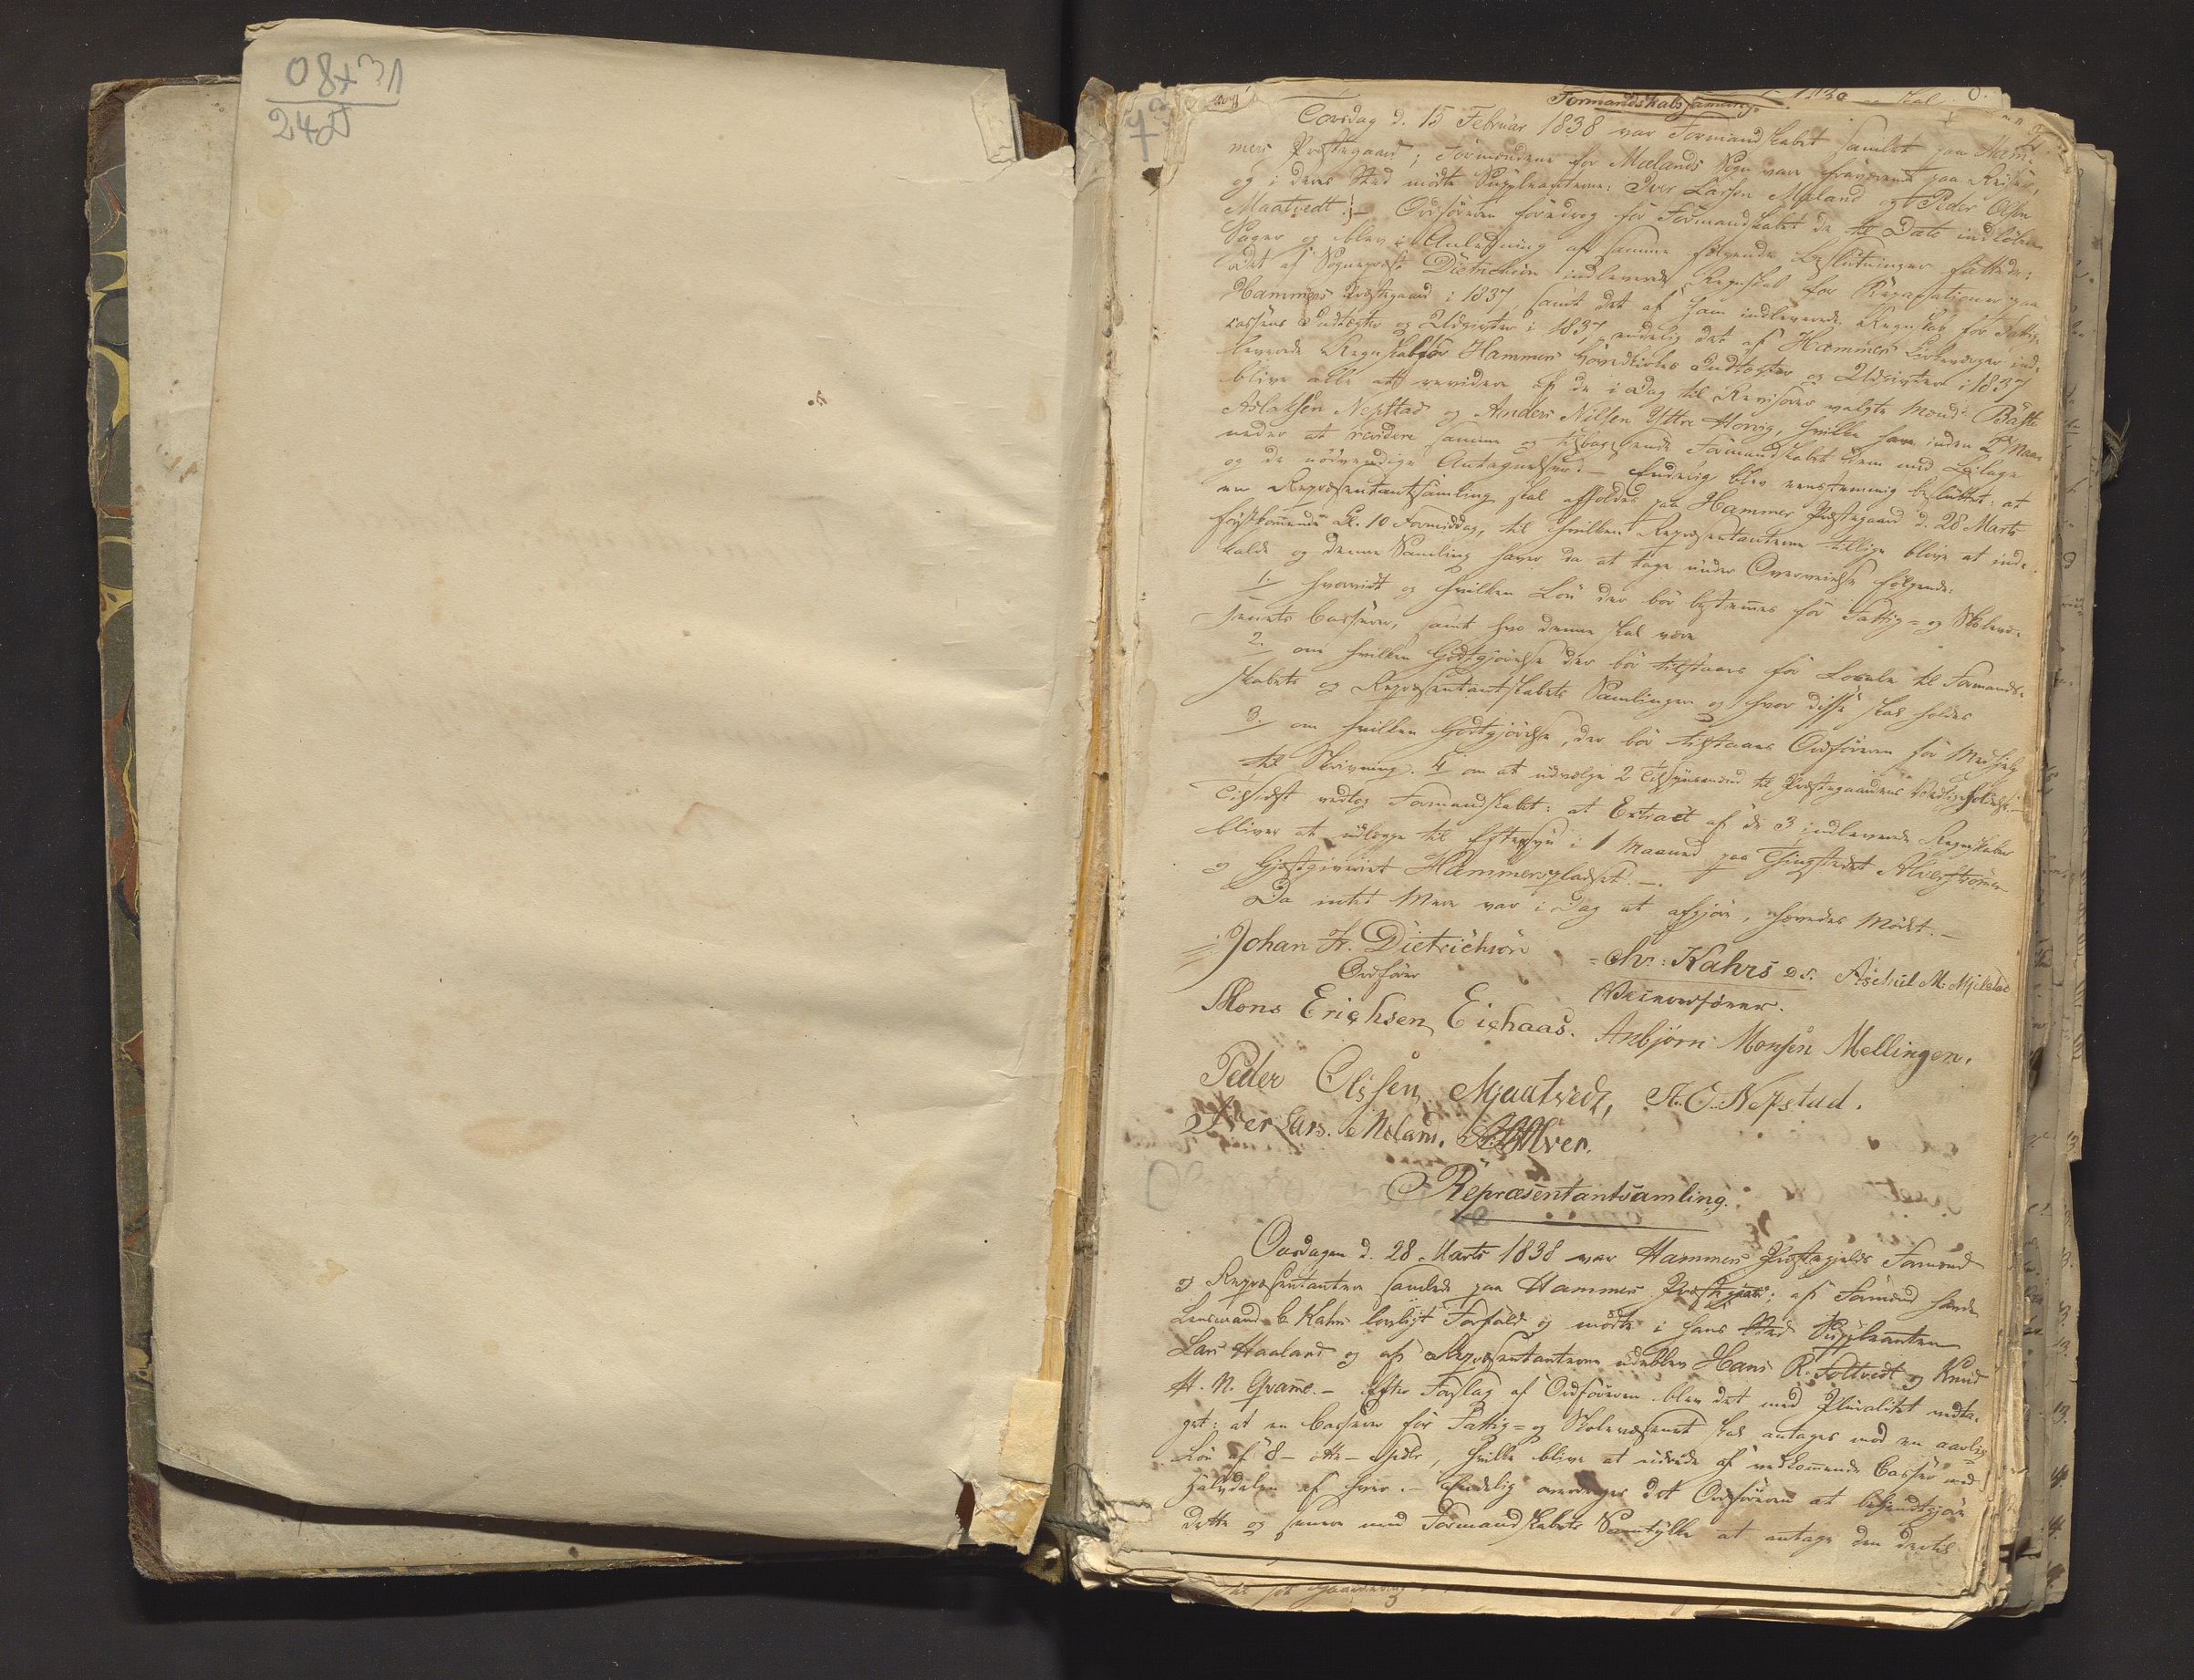 08x31
24d
Formandskabssamling.
Torsdag d. 15 Februar 1838 var Formandskabet samlet paa Ham-
mers Præstegaard; Formændene for Mælands Sogn vare fraværende paa Reiser,
og i deres Sted mødte Suppleanterne: Iver Larsen Mæland og Peder Olsen
Maatvedt. – Ordføreren foredrog for Formandskabet de til Dato indløbne
Sager og blev i Anledning af samme følgende Beslutninger fattede:
Det af Sognepræst Dietrichson indleverede Regnskab for Reparationer paa
Hammers Præstegaard i 1837, samt det af ham indleverede Regnskab for Fattig-
cassens Indtægter og Udgivter i 1837, endelig det af Hammers Kirkeværger ind-
leverede Regnskab for Hammers Hovedkirkes Indtægter og Udgivter i 1837
blive alle at revidere af de i Dag til Revisorer valgte Mænd:
Aslaksen Nepstad og Anders Nilsen Yttre Horvig, hvilke have inden 2 Maa-
neder at revidere samme og tilbagesende Formandskabet dem med Bilage
og de nødvendige Antegnelser. – Endelig blev eenstemmig besluttet: at
en Repræsentantsamling skal afholdes paa Hammer Præstegaard d. 28 Marts
førstkommende Kl. 10 Formiddag, til hvilken Repræsentanterne tillige blive at ind-
kalde og denne Samling haver da at tage under Overveielse følgende:
1. hvorvidt og hvilken Løn der bør bestemmes for Fattig- og Skolevæ-
senets Casserer, samt hvo denne skal være
2. om hvilken Godtgjørelse der bør tilstaaes for Locale til Formand-
skabets og Repræsentantskabets Samlinger og hvor disse skal holdes
3. om hvilken Godtgjørelse, der bør tilstaaes Ordføreren for Medhjelp
til Skrivning. 4 om at udvælge 2 Tilsynsmænd til Præstegaardens Vedligeholdelse.
Tilsidst vedtog Formandskabet: at Extract af de 3 indleverede Regnskaber
bliver at udlægge til Eftersyn i 1 Maaned paa Thingstedet Alverstrømen
og Gjæstgiveriet Hammerspladset. –
Da intet Mere var i Dag at afgjøre, hævedes Mødet. –
Johan Fr. Dietrichson
Ordfører
Chr: Kahrs
Viceordfører.
Mons Erichsen Eichaas. Anbjørn Monsen Mellingen.
Peder Olssen Mjaatvedt, A. O. Nepstad.
Iver Lars. Meland. Alver.
Repræsentantsamling.
Onsdagen d. 28 Marts 1838 var Hammers Præstegjelds Formænd
og Repræsentanter samlede paa Hammers Præstegaard; af Formænd havde
Lensmand C. Kahrs lovligt Forfald og mødte i hans Sted Suppleanten
Lars Haaland og af Repræsentanterne udebleve Hans R. Toftvedt og Knud
H. N. Qvamme. – Efter Forslag af Ordføreren blev det med Pluralitet vedta-
get: at en Casserer for Fattig- og Skolevæsenet skal antages med en aarlig
Løn af 8 – otte – Spdlr, hvilke blive at udrede af vedkommende Casser med
Halvdelen af hver. – Endelig overdroges det Ordføreren at bekjendtgjøre
dette og senere med Formandskabets Samtykke at antage den dertil